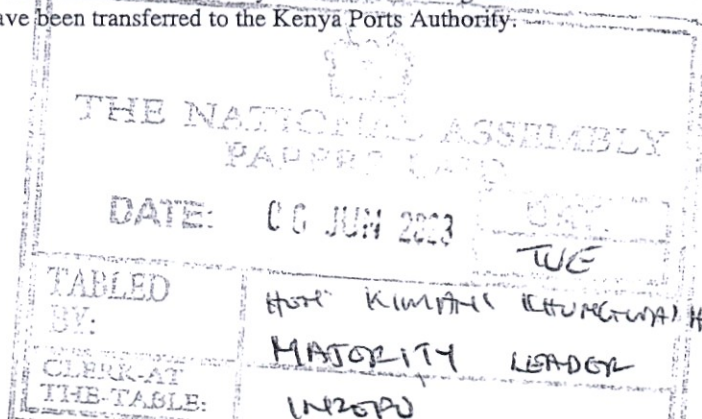 ave been transferred to the Kenya Ports Authority.
THE NATIONAL ASSEMBLY
PAPERS LAID
DATE: 06 JUN 2023 DAY.
TUE
TABLED
BY:
HON KIMANI
MAJORITY LEADER
CLERK-AT
THE-TABLE: